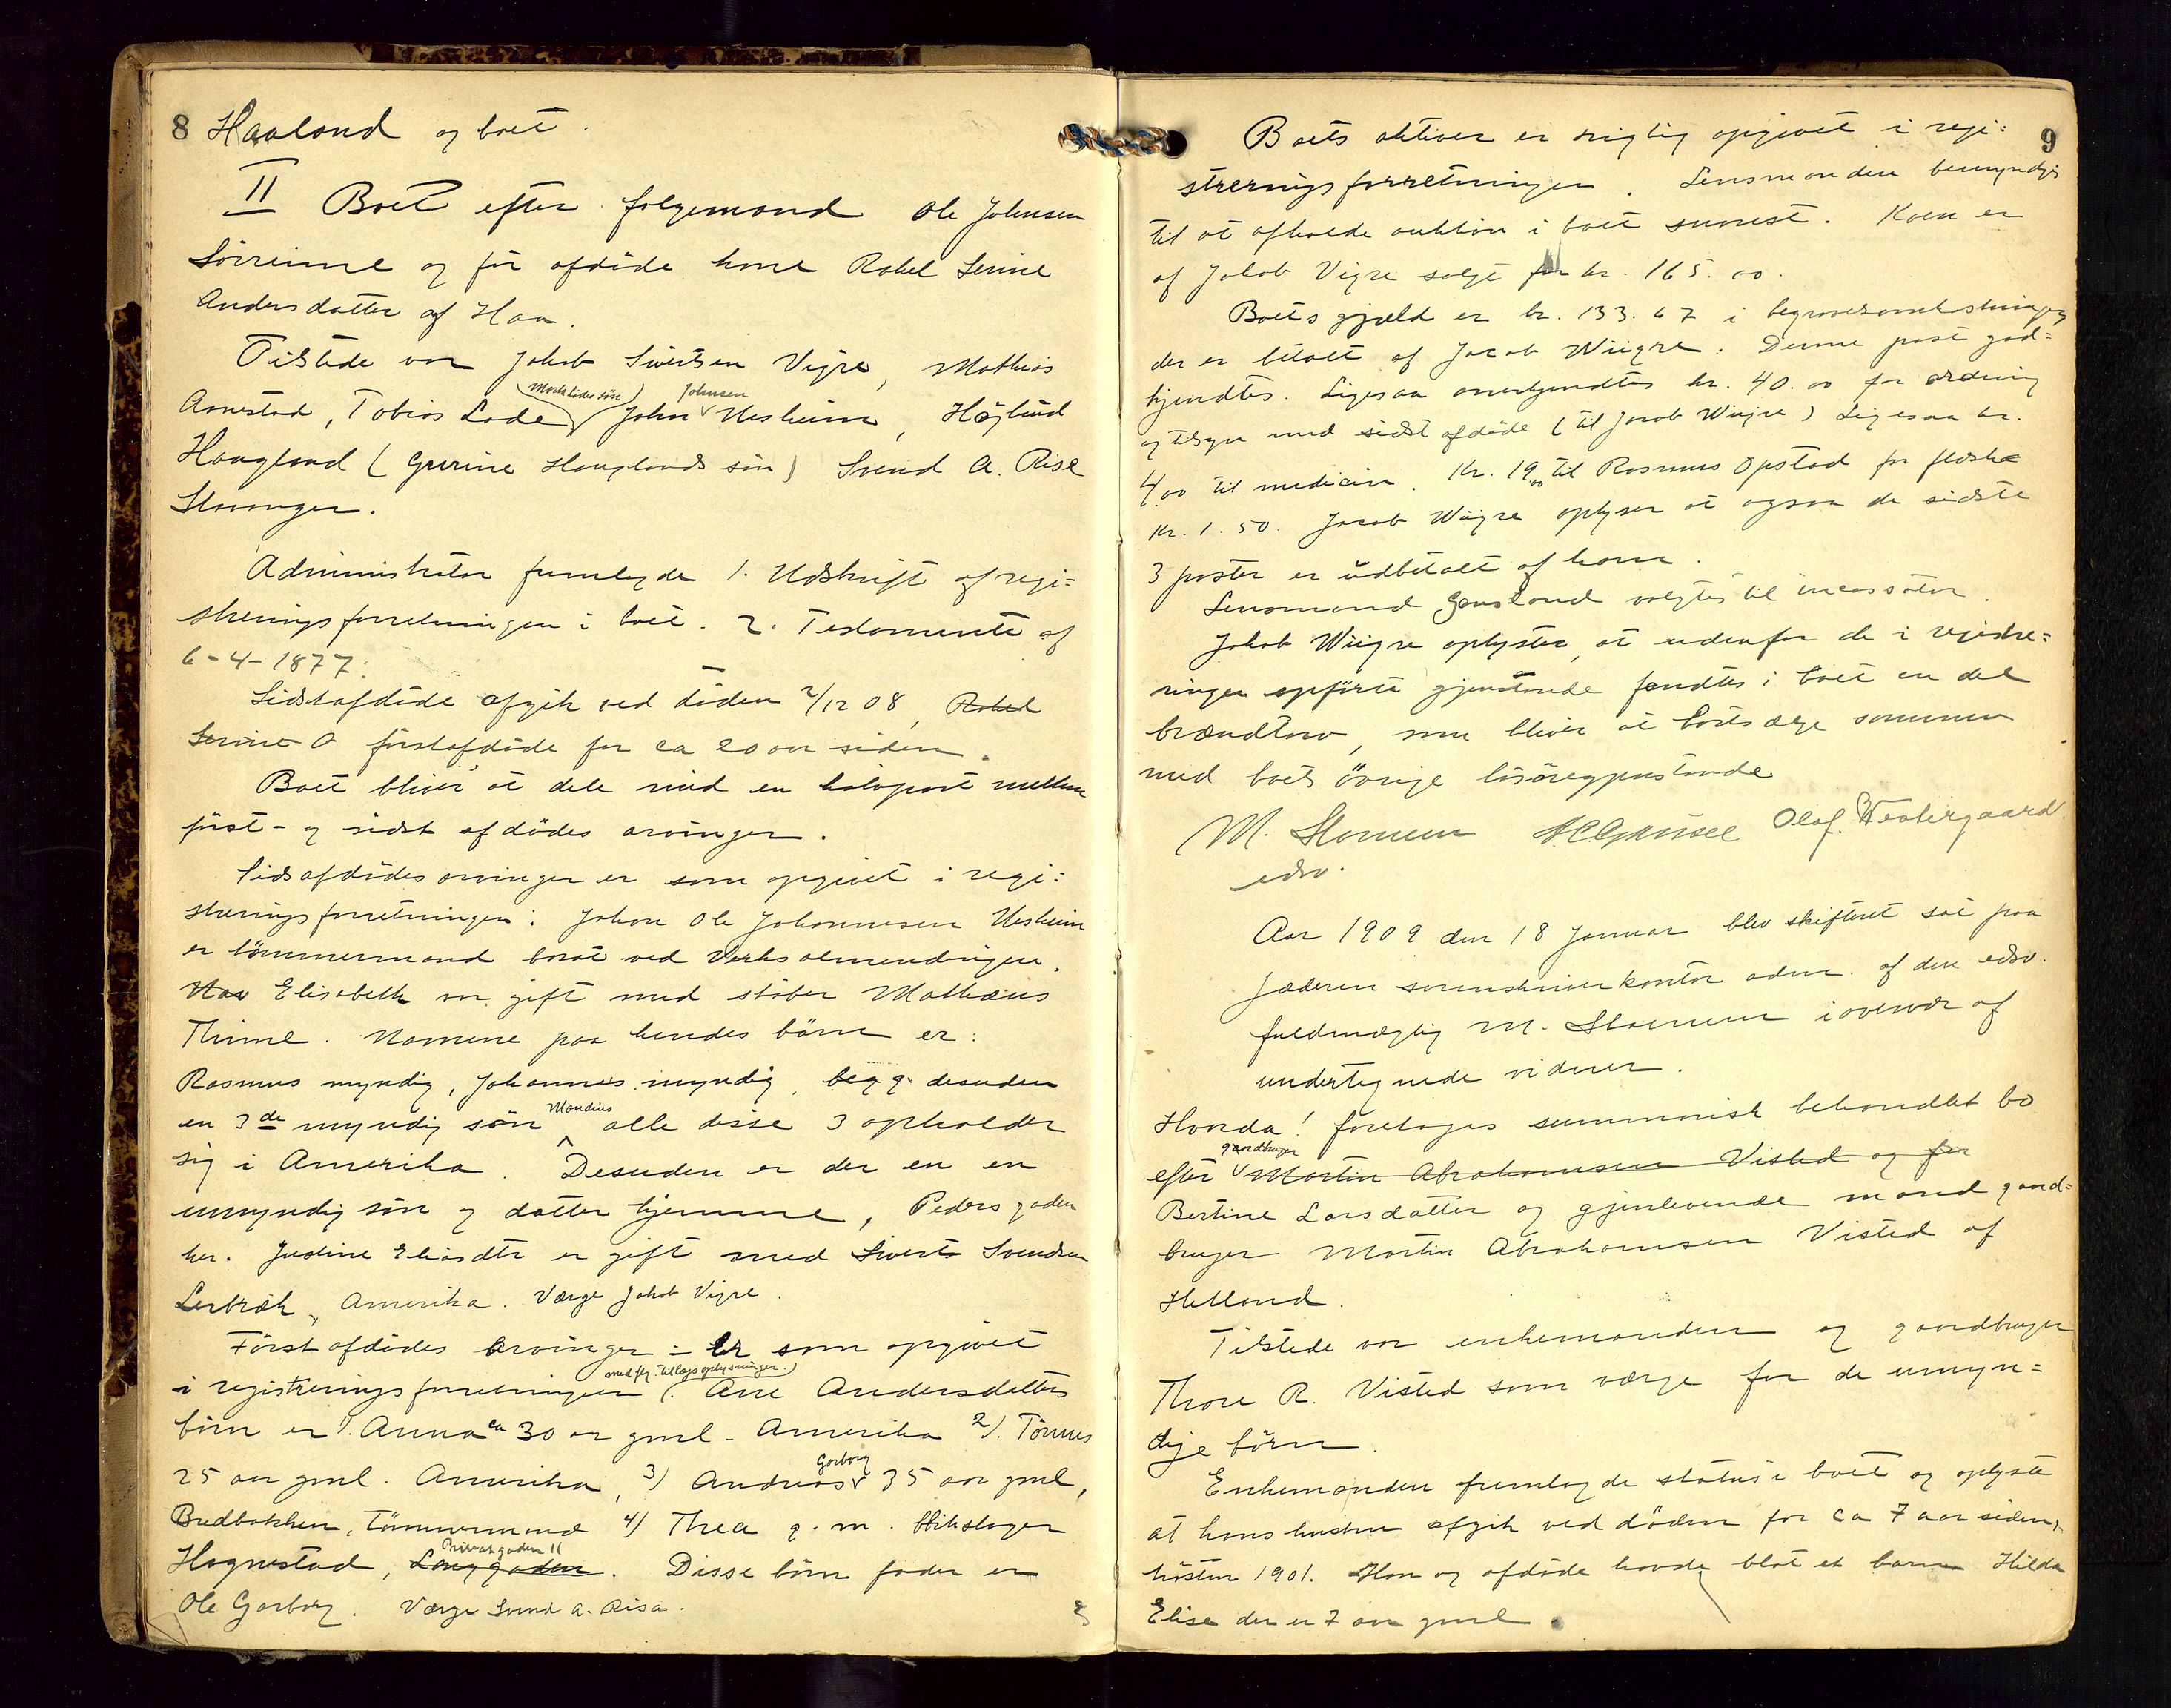 8 Haaland og boet.
II Boet efter folgemand Ole Johnsen
Sörreime og för afdöde kone Rakel Serine
Andersdatter af Haa.
Tilstede var Jakob Sivertsen Vigre, Mathias
Aanestad, Tobias Lode (Marta Lodes sön) John Johnsen Nesheim, Höjlund
Haugland (Gurine Hauglands sön) Svend A. Rise
Stavanger.
Administrator fremlagde 1. Udskrift af regi=
streringsforretningen i boet. 2. Testamente af
6-4-1877.
Sidstafdöde afgik ved döden 2/12 08, Rakel
Serine O förstafdöde for ca 20 aar siden.
Boet bliver at dele med en halvpart mellem
först- og sidst afdödes arvinger.
Sidsafdödes arvinger er som opgivet i regi=
streringsforretningen: Johan Ole Johannesen Nesheim
er tömmermand bosat ved Verksalmendingen.
Elisabeth er gift med stöber Mathæus
Thime. Navnene paa hendes börn er:
Rasmus myndig, Johannes myndig, begge desuden
en 3de myndig sön Mandius alle disse 3 opholder
sig i Amerika. Desuden er der en en
umyndig sön og datter hjemme, Pedersgaden
her. Justine Eliasdtr er gift med Siverts Svendsen
Lerbræk, Amerika. Værge Jakob Vigre.
Först afdödes arvinger = er som opgivet
i registreringsforretningen (med flg. tillægsoplysninger.) Ane Andersdatters
börn er 1). Anna ca 30 aar gml. Amerika 2). Tönnes
25 aar gml. Amerika, 3) Andreas Garborg 35 aar gml,
Bredbakken, tömmermand 4) Thea g. m. blikslager
Hognestad, Langgaden Privatgaden 11. Disse börns fader er
Ole Garborg. Værge Svend A. Risa.
9
Boets aktiver er rigtig opgivet i regi=
streringsforretningen. Lensmanden bemyndiges
til at afholde auktion i boet snarest. Koen er
af Jakob Vigre solgt for kr. 165.00.
Boets gjæld er kr. 133.67 i begravesomkostninger
der er betalt af Jacob Wiigre. Denne post god=
kjendtes. Ligesaa anerkjendtes kr. 40.00 for ordning
og tilsyn med sidst afdöde (til Jacob Wiigre) Ligesaa kr.
4.00 til medicin. Kr. 19.00 til Rasmus Opstad for fleske
Kr. 1.50. Jacob Wiigre oplyser at ogsaa de sidste
3 poster er udbetalt af ham.
Lensmand Gausland valgtes til incassator.
Jakob Wiigre oplyste, at udenfor de i registre=
ringen opförte gjenstande fandtes i boet en del
brændtorv, som bliver at bortsælge sammen
med boets övrige lösöregjenstande
M. Stornum Olaf. Westergaard.
edsv.
Aar 1909 den 18 Januar blev skifteret sat paa
Jæderen sorenskriverkontor adm. af den edsv.
fuldmægtig M. Stornum i overvær af
undertegnede vidner.
Hvorda! foretages summarisk behandlet bo
efter gaardbruger Martin Abrahamsen Visted og for
Bertine Larsdatter og gjenlevende mand gaard=
bruger Martin Abrahamsen Visted af
Hetland.
Tilstede var enkemanden og gaardbruger
Thore R. Visted som værge for de umyn=
dige börn.
Enkemanden fremlagde status i boet og oplyste
at hans hustru afgik ved döden for ca 7 aar siden,
hösten 1901. Han og afdöde havde blot et barn Hilda
Elise der er 7 aar gml.